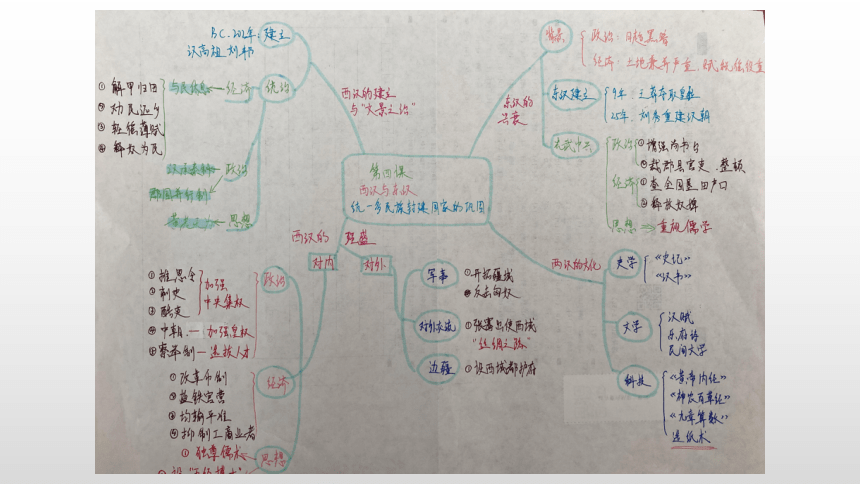 B.C.202年.建立
汉高祖刘邦
西汉的建立
与"文景之治"
统治
经济
与民休息
①解甲归田
②劝民返乡
③轻徭薄赋
④释奴为民
政治
汉承秦制
郡国并行制
思想
黄老之学
第四课
西汉与东汉
统一多民族封建国家的巩固
东汉的
兴衰
背景
政治:日趋黑暗
经济:土地兼并严重,赋税徭役重
东汉建立
9年 王莽夺取皇权
25年 刘秀重建汉朝
光武中兴
政治
①增强尚书台
②裁郡县官吏.整顿
经济
①查全国垦田户口
②释放奴婢
思想
重视儒学
西汉的 强盛
对内
对外
政治
①推恩令
②刺史
③酷吏
加强
中央集权
④中朝.—加强皇权
⑤察举制—选拔人才
经济
①改革币制
②盐铁官营
③均输平准
④抑制工商业者
思想
①独尊儒术
军事
①开拓疆域
②反击匈奴
对外交流
①张骞出使西域
"丝绸之路"
边疆
①设西域都护府
两汉的文化
史学
《史记》
《汉书》
文学
汉赋
乐府诗
民间文学
科技
《黄帝内经》
《神农百草经》
《九章算数》
造纸术